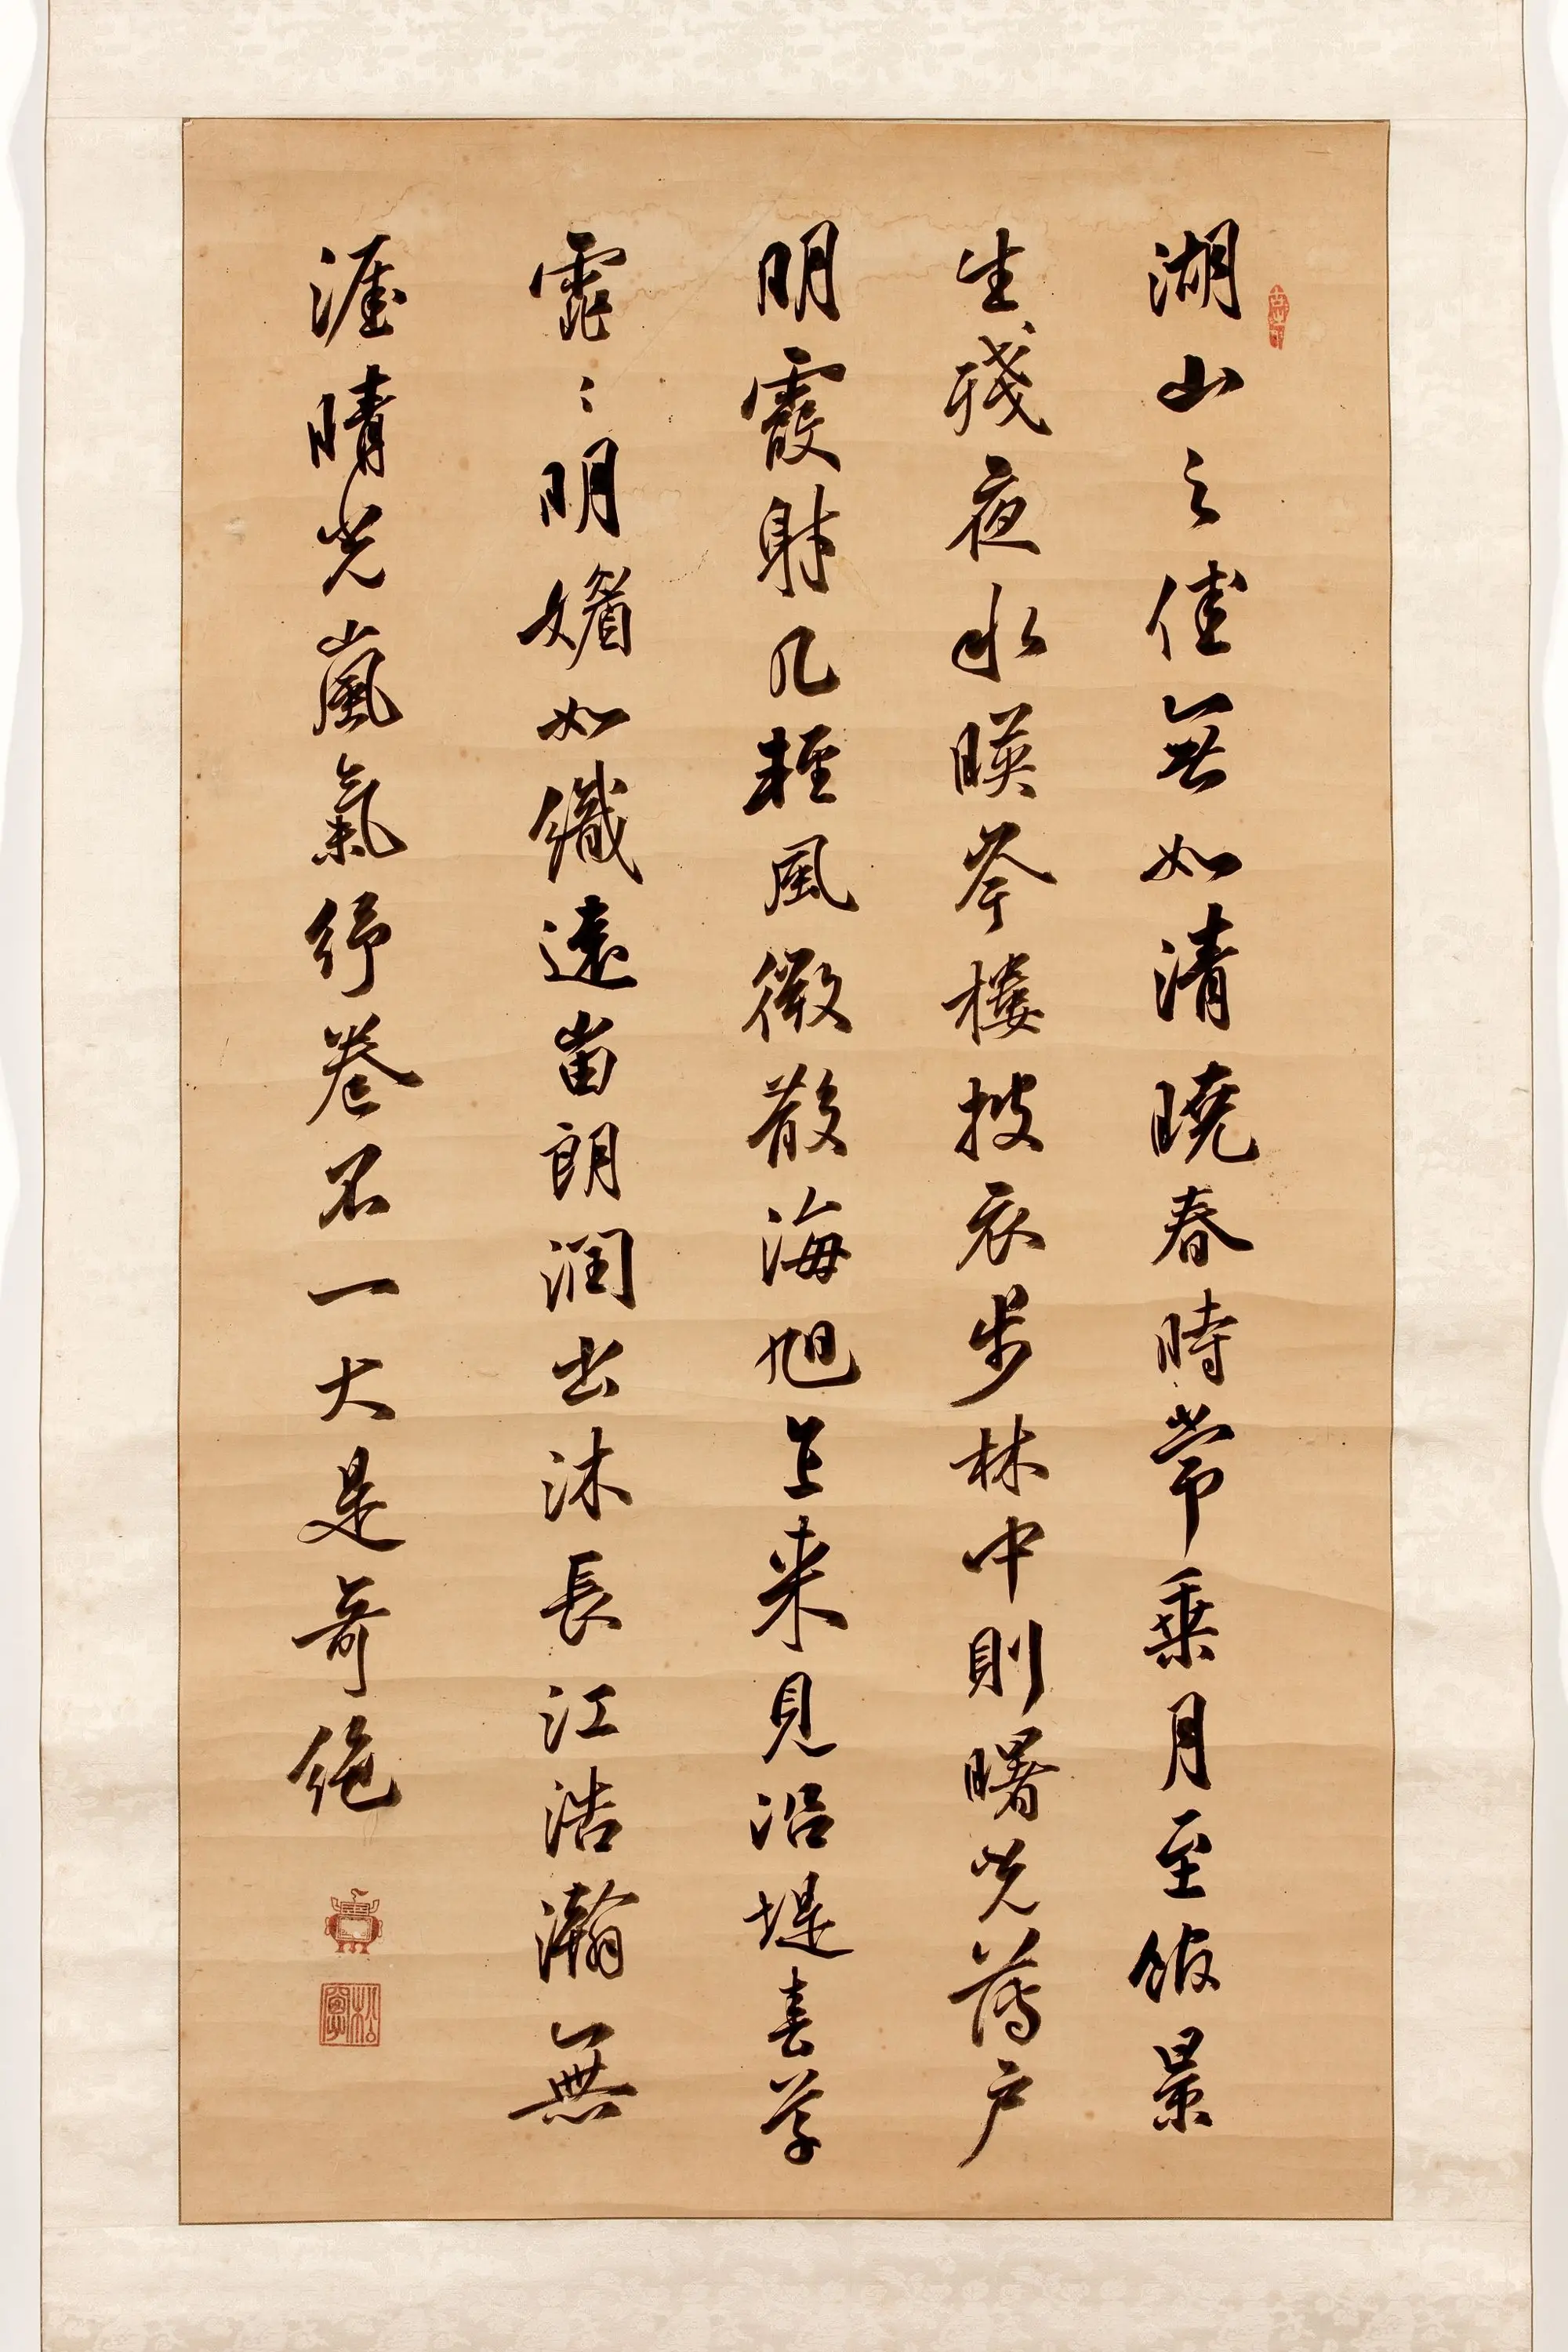 湖山之佳無如清曉春時常乗月至館景
生殘夜水暎岑樓披衣步林中則曙光薄戶
明霞射几輕風微散海旭乍来見沿堤春草
霏〻明媚如織遠岫朗潤出沐長江浩瀚無
涯晴光嵐氣紓卷不一大是奇絶